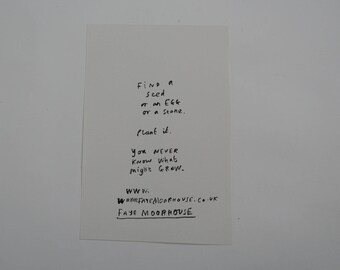 FIND A
seed
or an EGG
or a stone.
Plant it.
you NEVER
KNOW what
might GROW.
WWW.
FAYE MOORHOUSE